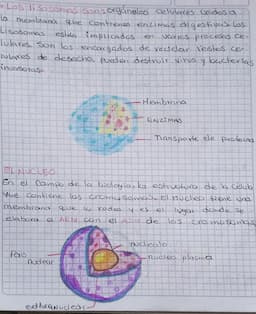 Los lisosomas son orgánelos celulares unidos a
la membrana que contienen enzimas digestivas los
Lisosomas están implicados en varios procesos ce-
lulares son los encargados de reciclar restos ce-
lulares de desecho pueden destruir virus y bacterias
invasoras.
Membrana
ENZIMAS
Transporte de proteina
EL NUCLEO
En el campo de la biología la estructura de la celula
que contiene los cromosomas. El nucleo tiene una
membrana que lo rodea y es el lugar donde se
elabora el ARN con el ADN de los cromosomas
nucleolo
Poro
nuclear
nucleo plasma